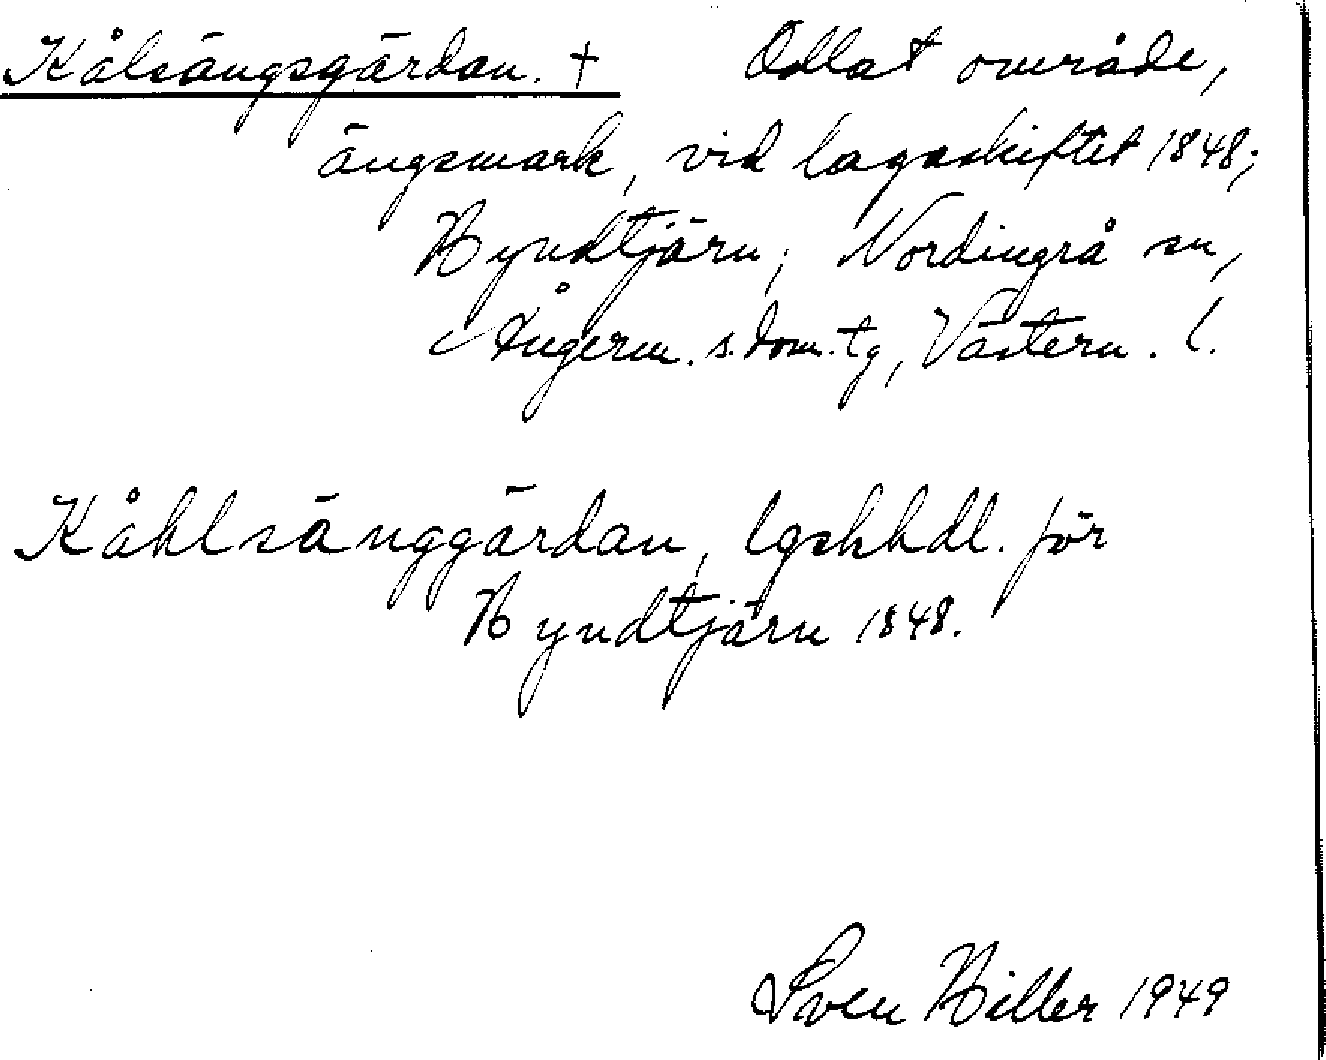 Kålsängsgärdan. † Odlat område,
ängsmark, vid lagaskiftet 1848;
Hyndtjärn; Nordingrå sn,
Ångerm. s. dom. tg, Västern. l.
Kåhlsänggärdan, lgshhdl. för
Hyndtjärn 1848.
Sven Hiller 1949